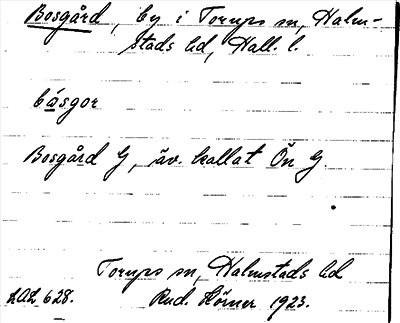 Bosgård, by i Torups sn, Halm-
stads hd, Hall. l.
båsgor
Bosgård G, äv. kallat Ön G.
Torups sn, Halmstads hd
LAL 628. Rud. Hörner 1923.